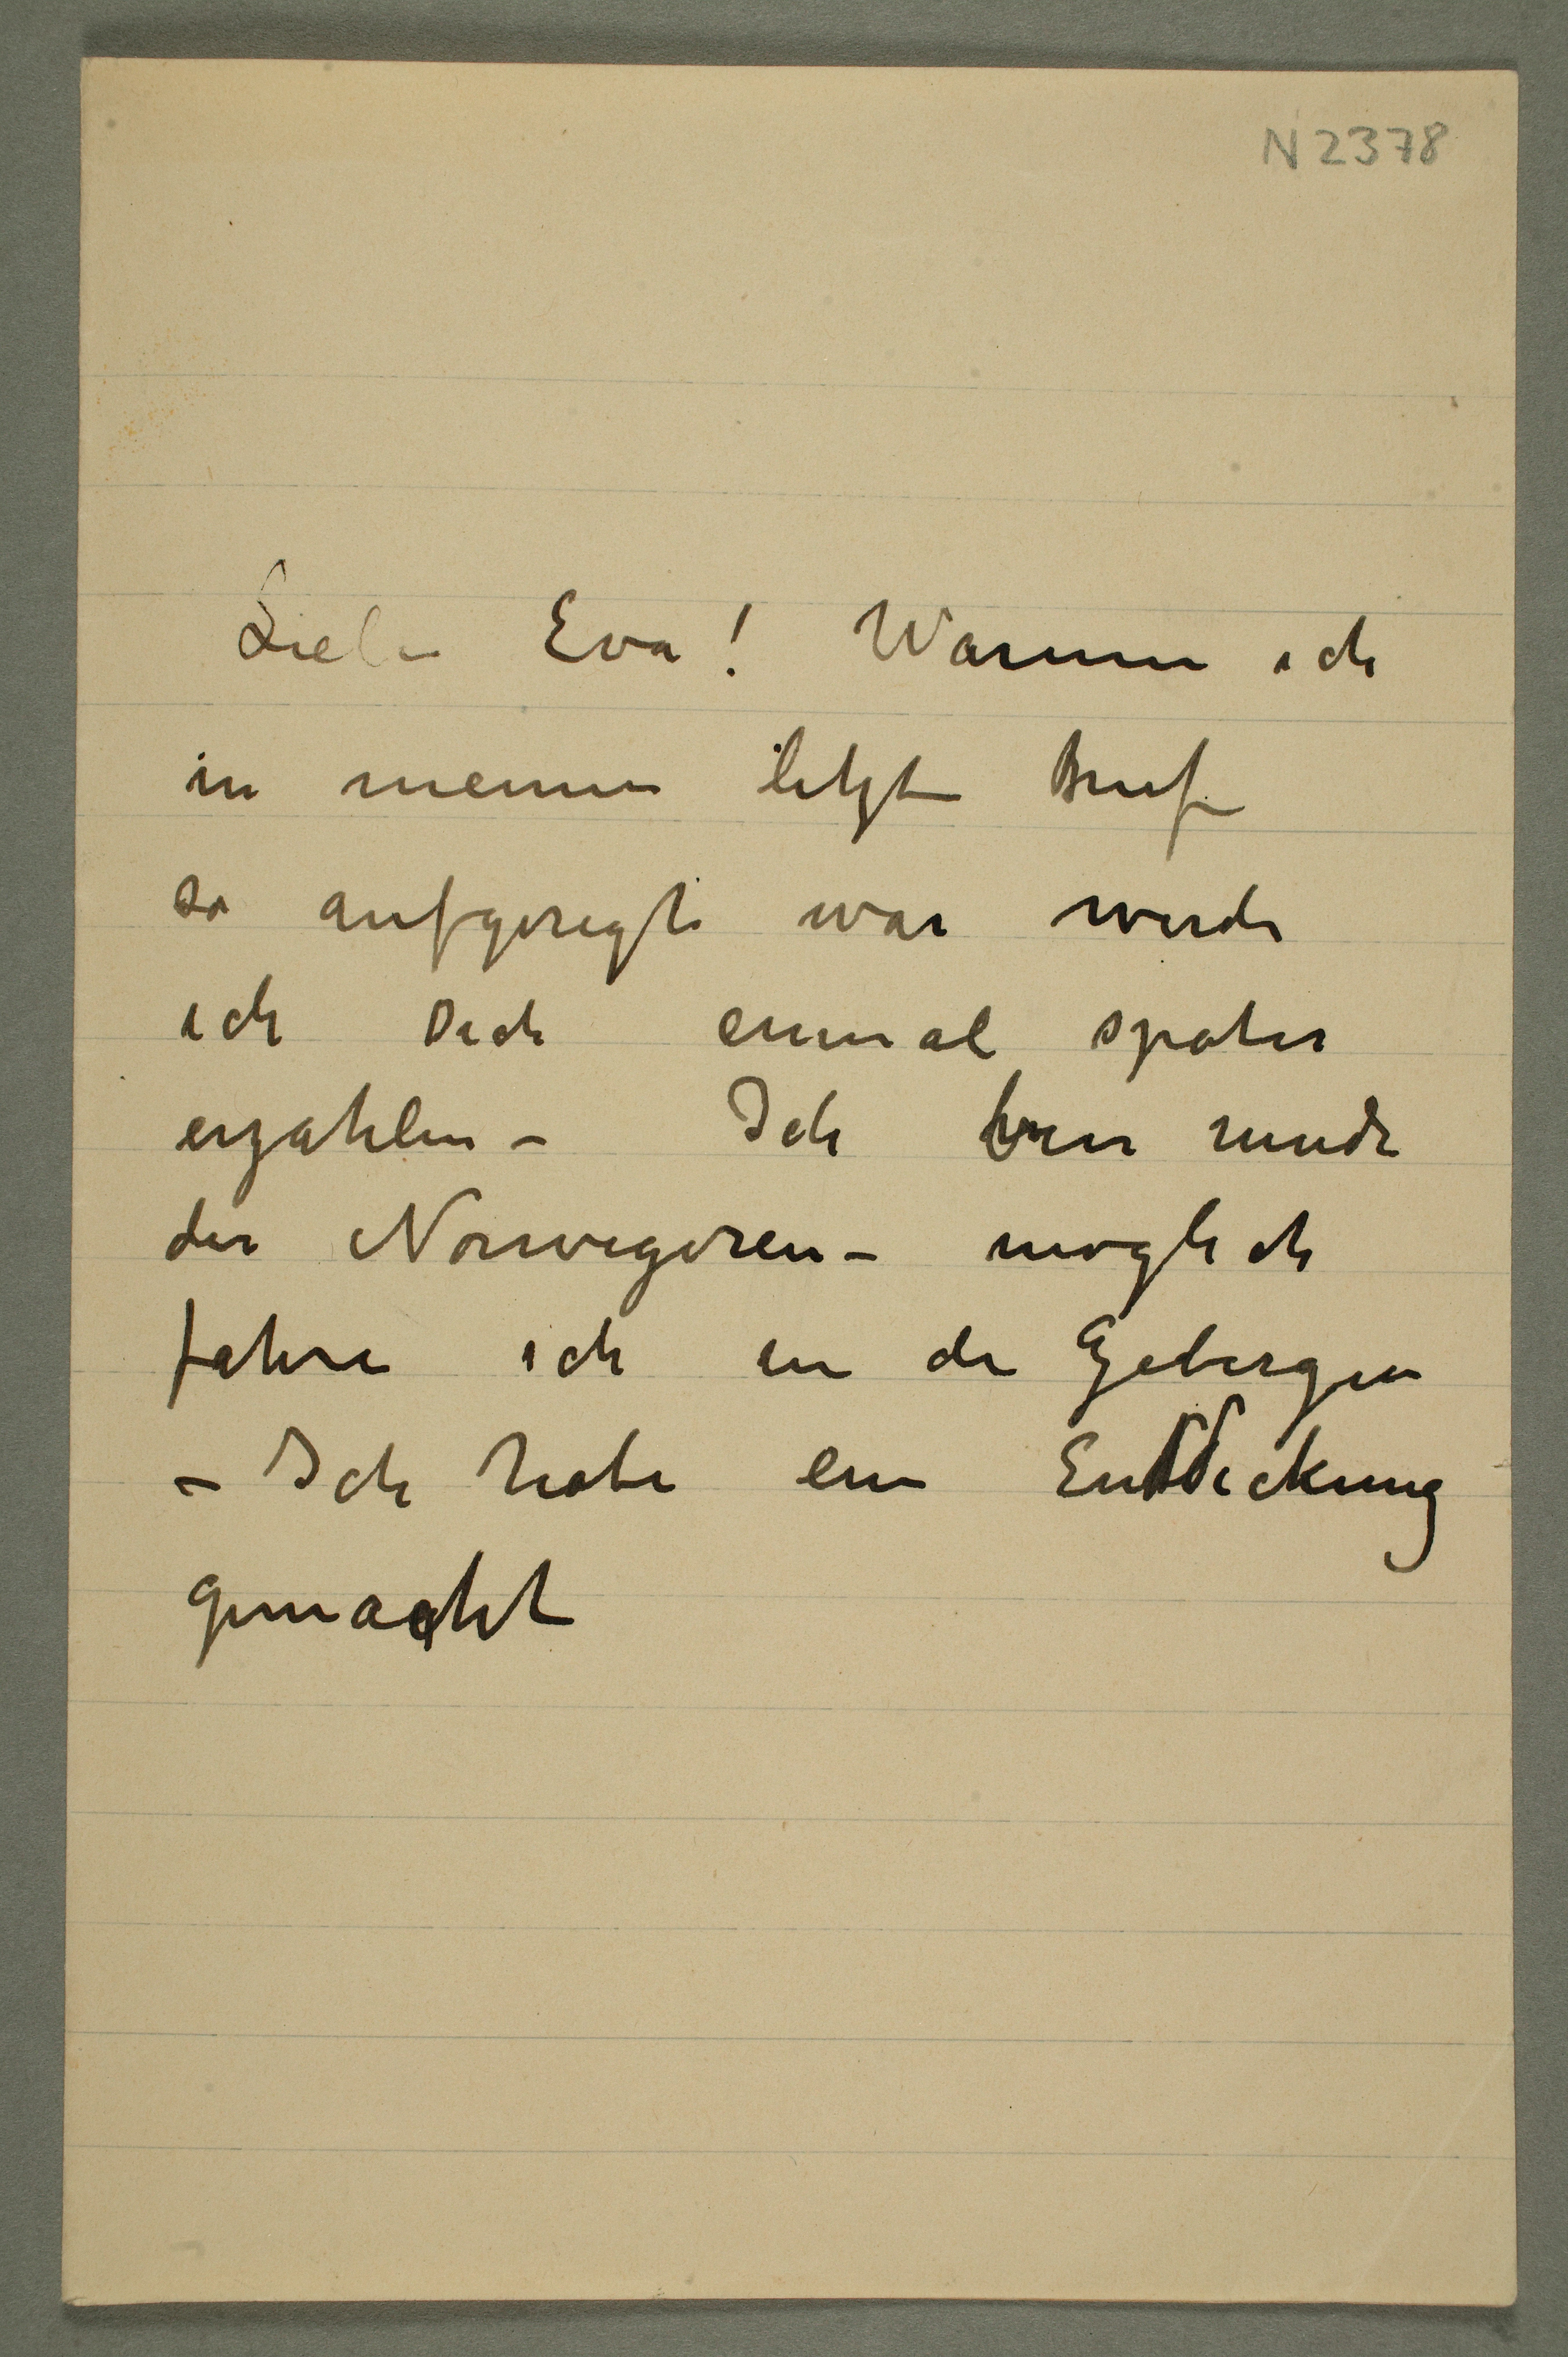 N 2378
Liebe Eva! Warum ich
in meinem letzten Brief
so aufgeregt war werde
ich Dich einmal spater
erzahlen – Ich bin mude
der Norwegeren – moglich
fahre ich in de Gebergen
– Ich habe ein Entdeckung
gemacht